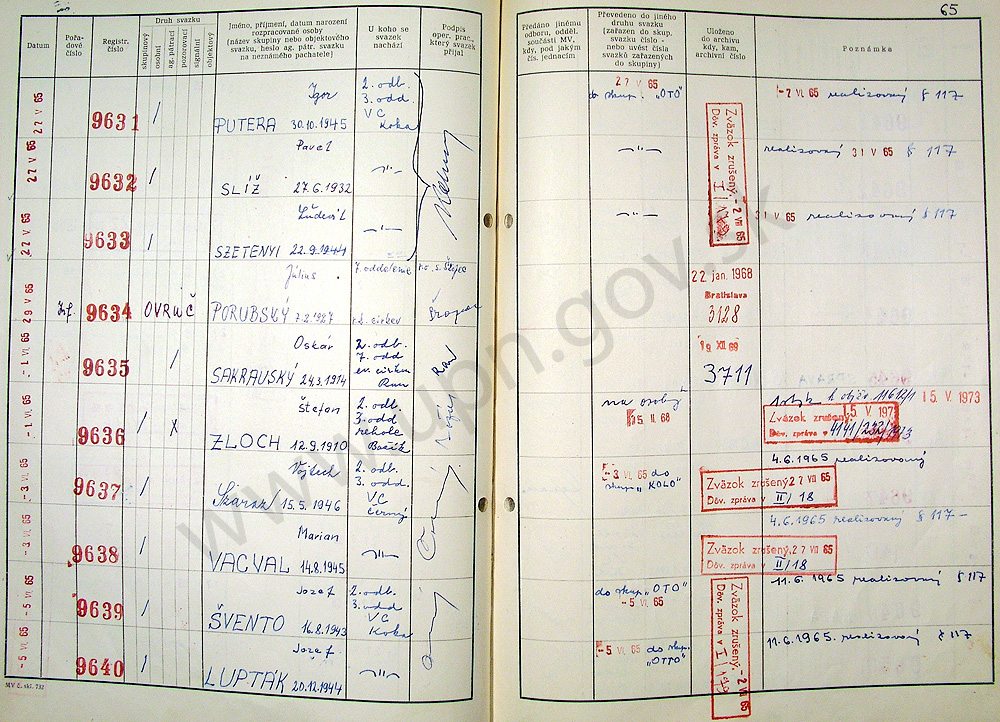 65
Datum
Pořadové číslo
Registr. číslo
Druh svazku
skupinový
osobní
ag. pátrací
pozorovací
signální
objektový
Jméno, příjmení, datum narození
rozpracované osoby
(název skupiny nebo objektového
svazku, heslo ag. pátr. svazku
na neznámého pachatele)
U koho se
svazek
nachází
Podpis
oper. prac.,
který svazek
přijal
Předáno jinému
odboru, odděl.
součásti MV,
kdy, pod jakým
čís. jednacím
Převedeno do jiného
druhu svazku
(zařazen do skup.
svazku číslo -
nebo uvést čísla
svazků zařazených
do skupiny)
Uloženo
do archivu
kdy, kam,
archivní číslo
Poznámka
27 V 65
9631
/
Igor
PUTERA 30.10.1945
2. odb.
3. odd.
VC
Koka
27 V 65
do skup. "OTO"
-2 VI 65 realizovaný § 117
27 V 65
9632
/
Pavel
SLÍŽ 27.6.1932
-"-
-"-
Zväzok zrušený. -2 VII 65
Dôv. zpráva v I
realizovaný 31 V 65 § 117
27 V 65
9633
/
Ľudevít
SZETENYI 22.9.1944
-"-
-"-
31 V 65 realizovaný § 117
29 V 65
9634
OVRUČ
Július
PORUBSKÝ 7.2.1927
7. oddelenie
r.k. cirkev
22 jan. 1968
Bratislava
3128
-1 VI. 65
9635
/
Oskár
SAKRAUSKÝ 24.3.1914
2. odb.
7. odd
ev. cirkev
Rau
Rau
19 XII 69
3711
-1 VI. 65
9636
/ x
Štefan
ZLOCH 12.9.1910
2. odb.
3. odd
rehole
na osoby
15. II. 68
11612/1 15. V. 1973
Zväzok zrušený 15. V. 1973
Dôv. zpráva v 4141/232/1973
-3 VI. 65
9637
/
Vojtech
Száraz 15.5.1946
2. odb.
3. odd.
VC
Černý
-3 VI. 65 do
skup. "KOLO"
Zväzok zrušený 27 VII 65
Dôv. zpráva v II/18
4.6.1965 realizovaný
-3 VI. 65
9638
/
Marian
VACVAL 14.8.1945
-"-
Zväzok zrušený. 27 VII 65
Dôv. zpráva v II/18
4.6.1965 realizovaný § 117-
-5 VI. 65
9639
/
Jozef
ŠVENTO 16.8.1943
2. odb.
3. odd
VC
Koka
do skup. "OTO"
-5 VI. 65
Zväzok zrušený. -2 VII 65
Dôv. zpráva v I
11.6.1965 realizovaný § 117
-5 VI. 65
9640
/
Jozef
LUPTÁK 20.12.1944
-"-
-5 VI. 65 do skup.
"OTTO"
11.6.1965. realizovaný § 117
MV č. skl. 732
www.upn.gov.sk